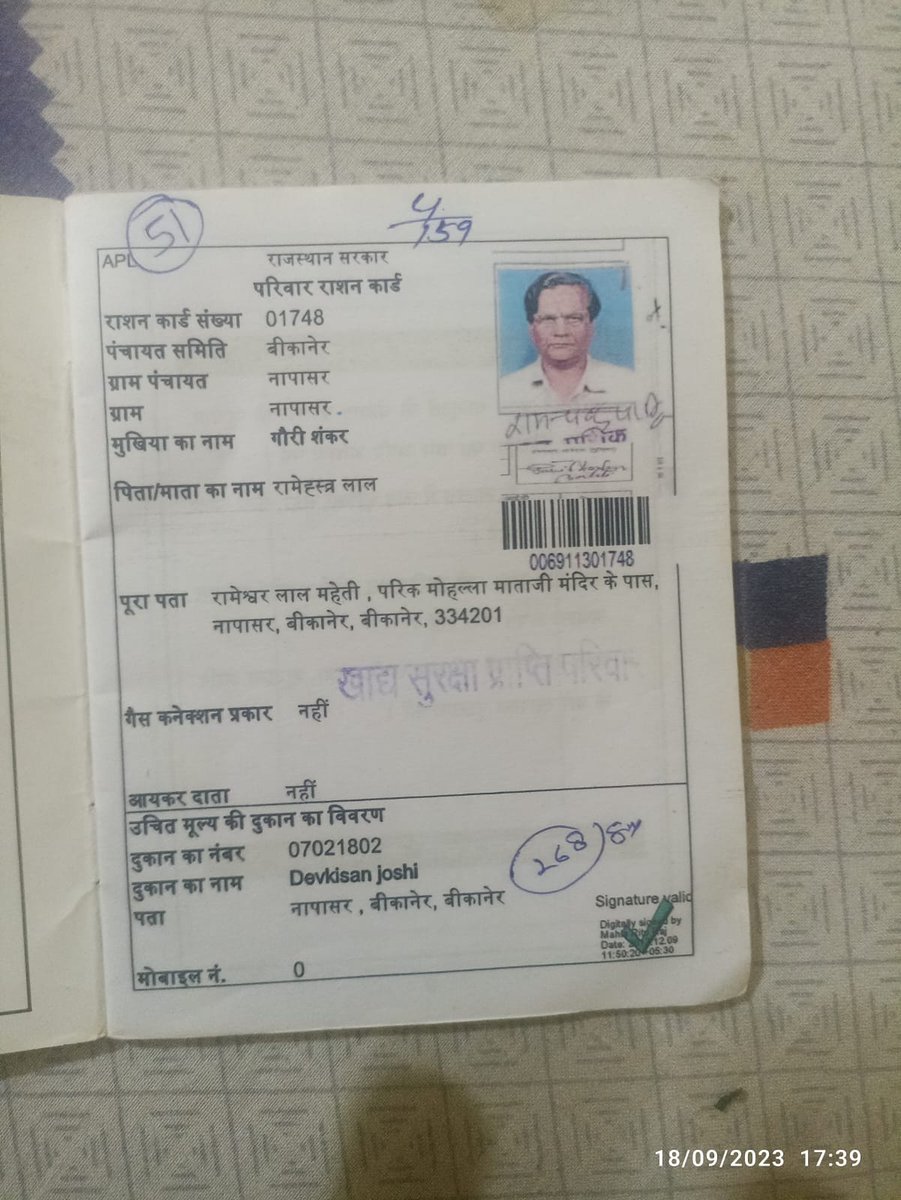 51
4/159
APL
राजस्थान सरकार
परिवार राशन कार्ड
राशन कार्ड संख्या 01748
पंचायत समिति बीकानेर
ग्राम पंचायत नापासर
ग्राम नापासर .
मुखिया का नाम गौरी शंकर
पिता/माता का नाम रामेह्स्त्र लाल
006911301748
पूरा पता रामेश्वर लाल महेती , परिक मोहल्ला माताजी मंदिर के पास,
नापासर, बीकानेर, बीकानेर, 334201
खाद्य सुरक्षा प्राप्ति परिवा
गैस कनेक्शन प्रकार नहीं
आयकर दाता नहीं
उचित मूल्य की दुकान का विवरण
दुकान का नंबर 07021802
268
दुकान का नाम Devkisan joshi
पता नापासर , बीकानेर, बीकानेर
Signature valid
Digitally signed by
Date: 12.09
11:50:20 +05:30
मोबाइल नं. 0
18/09/2023 17:39